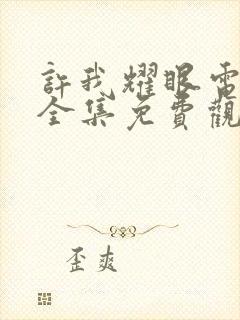 許我耀眼電
全集免費觀
歪爽